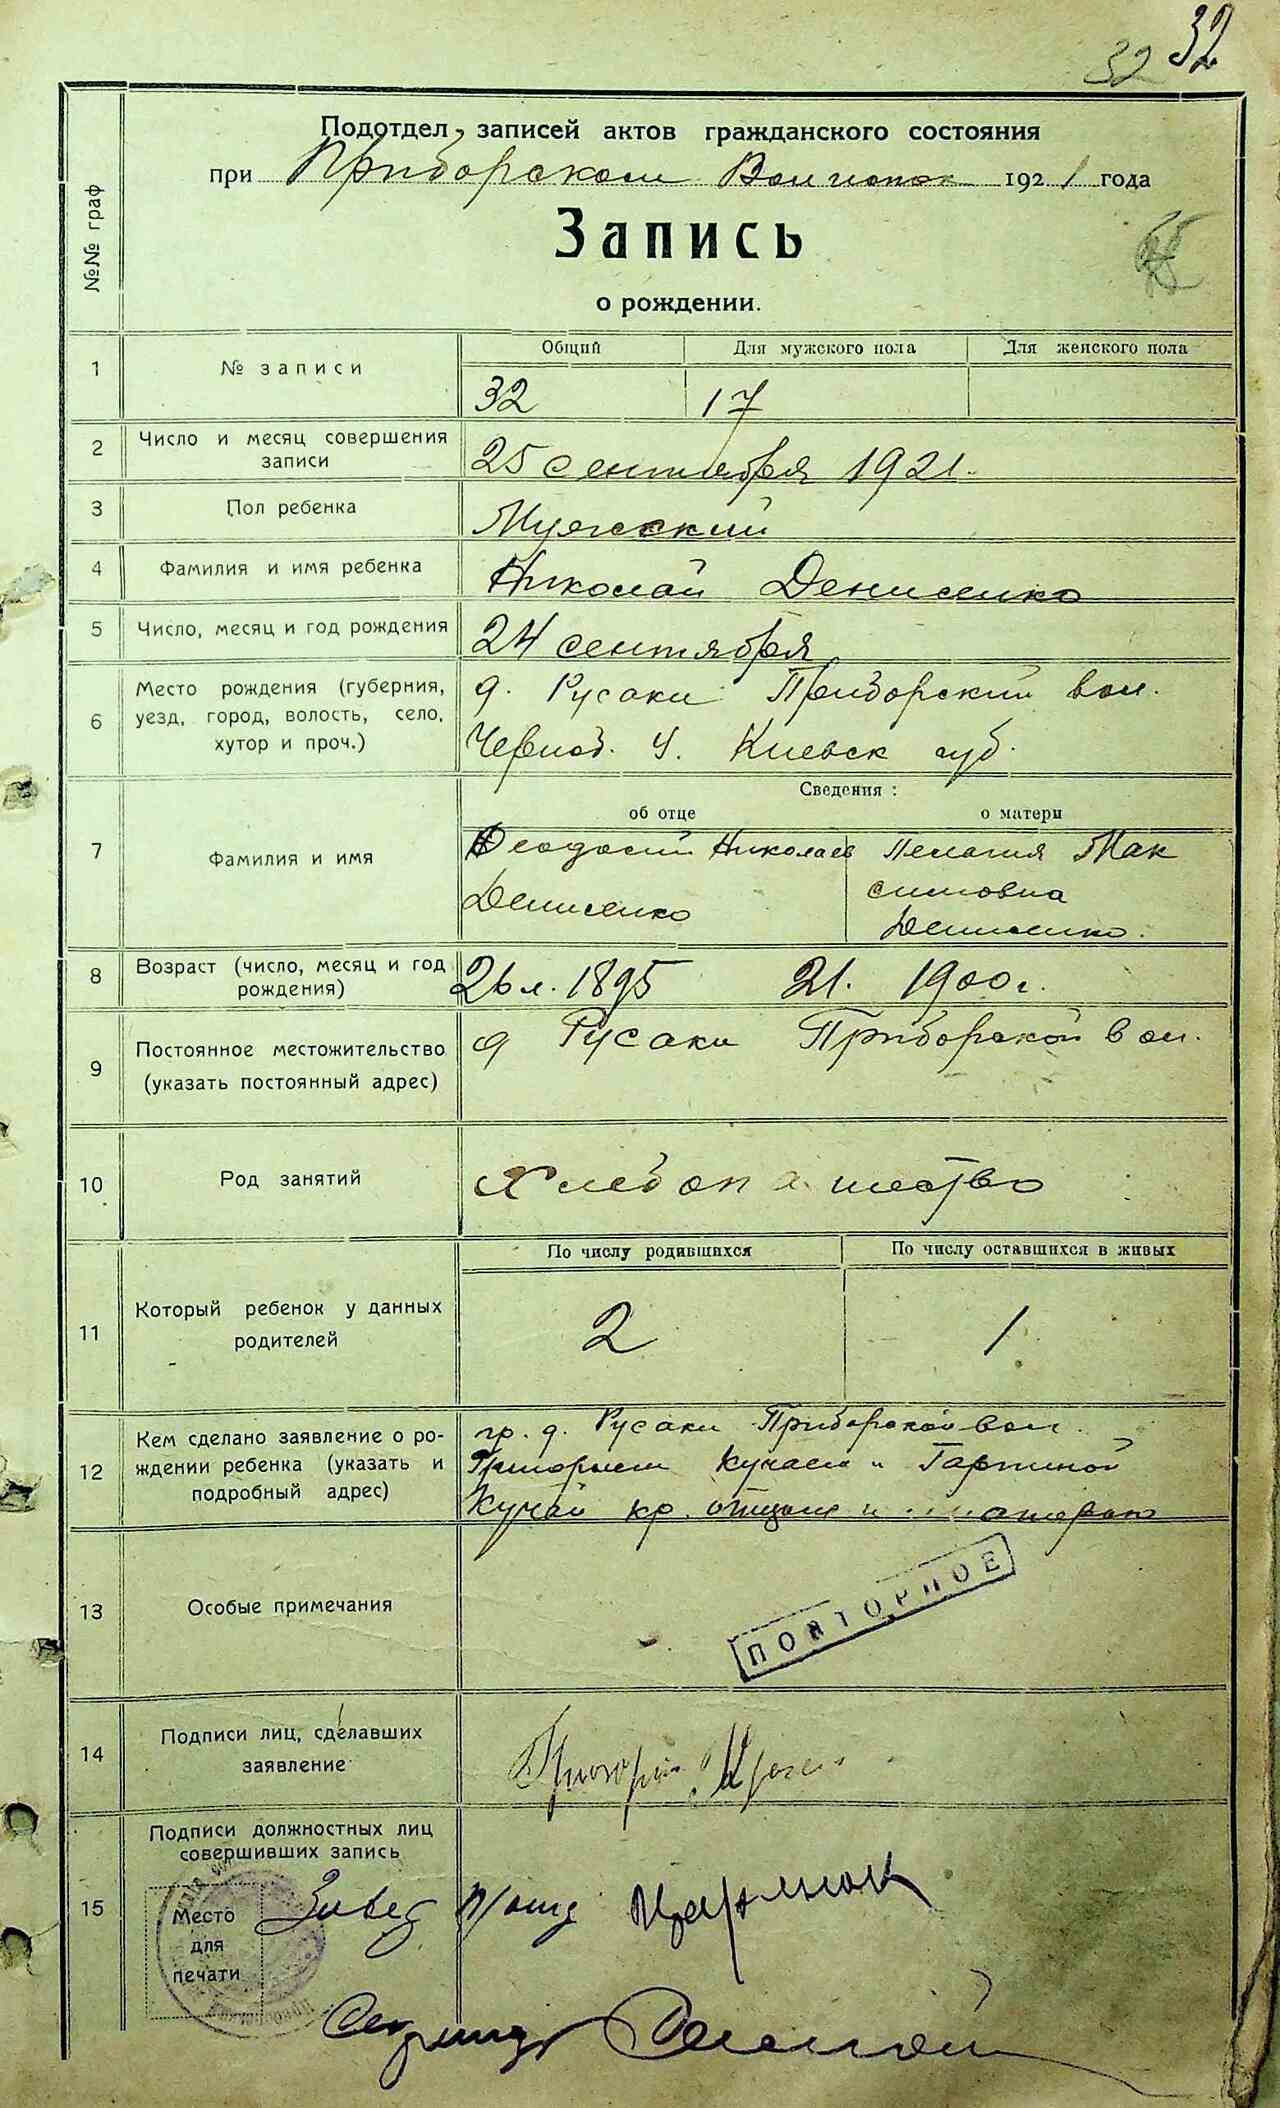 32 32
Подотдел записей актов гражданского состояния
при Приборском 1921 года
№№ граф
Запись
о рождении.
Общий Для мужского пола Для женского пола
1 № записи 32 17
2 Число и месяц совершения записи 25 сентября 1921.
3 Пол ребенка Мужеский
4 Фамилия и имя ребенка Николай Денисенко
5 Число, месяц и год рождения 24 сентября
6 Место рождения (губерния, уезд, город, волость, село, хутор и проч.)
д. Русаки Приборский вол.
Черноб. у. Киевск губ.
Сведения:
об отце о матери
7 Фамилия и имя
Феодосий Николаев Пелагия Мак
Денисенко симовна
Денисенко.
8 Возраст (число, месяц и год рождения) 26 л. 1895 21. 1900 г.
9 Постоянное местожительство (указать постоянный адрес)
д Русаки Приборской вол.
10 Род занятий Хлебопашество
По числу родившихся По числу оставшихся в живых
11 Который ребенок у данных родителей 2 1
12 Кем сделано заявление о рождении ребенка (указать и подробный адрес)
гр. д. Русаки Приборской вол.
Григорием Кучаем и Гарпиной
Кучай кр. отцом и матерью
13 Особые примечания
ПОВТОРНОЕ
14 Подписи лиц, сделавших заявление
Григорий
15 Подписи должностных лиц совершивших запись
Завед п/отд
Место
для
печати
Секретарь